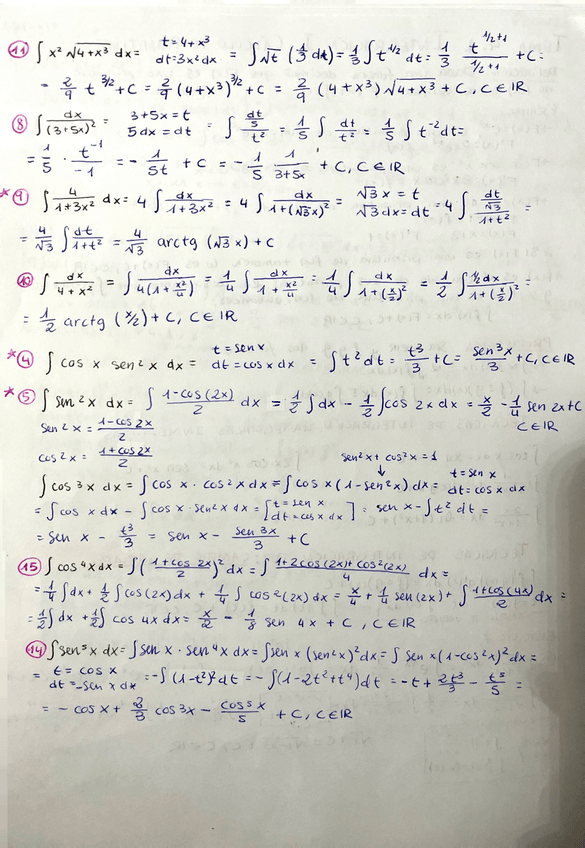 11 ∫ x² √4+x³ dx = t=4+x³ dt=3x²dx = ∫ √t (1/3 dt) = 1/3 ∫ t^1/2 dt = 1/3 t^(1/2+1)/(1/2+1) + C =
= 2/9 t^3/2 + C = 2/9 (4+x³)^3/2 + C = 2/9 (4+x³) √4+x³ + C, C∈IR
8 ∫ dx/(3+5x)² = 3+5x=t 5dx=dt = ∫ (dt/5)/t² = 1/5 ∫ dt/t² = 1/5 ∫ t⁻² dt =
= 1/5 · t⁻¹/-1 = - 1/5t + C = - 1/5 1/(3+5x) + C, C∈IR
* 9 ∫ 4/(1+3x²) dx = 4 ∫ dx/(1+3x²) = 4 ∫ dx/(1+(√3x)²) = √3 x = t √3 dx = dt = 4 ∫ (dt/√3)/(1+t²) =
= 4/√3 ∫ dt/(1+t²) = 4/√3 arctg (√3 x) + C
10 ∫ dx/(4+x²) = ∫ dx/(4(1+x²/4)) = 1/4 ∫ dx/(1+x²/4) = 1/4 ∫ dx/(1+(x/2)²) = 1/2 ∫ (1/2 dx)/(1+(x/2)²) =
= 1/2 arctg (x/2) + C, C∈IR
* 4 ∫ cos x sen²x dx = t=senx dt=cosx dx = ∫ t² dt = t³/3 + C = sen³x/3 + C, C∈IR
* 5 ∫ sen²x dx = ∫ (1-cos(2x))/2 dx = 1/2 ∫ dx - 1/2 ∫ cos 2x dx = x/2 - 1/4 sen 2x + C
C∈IR
sen²x = (1-cos2x)/2
cos²x = (1+cos2x)/2
sen²x + cos²x = 1
∫ cos³x dx = ∫ cos x · cos²x dx = ∫ cos x (1-sen²x) dx = t=sen x dt=cos x dx
= ∫ cos x dx - ∫ cos x · sen²x dx = [t=sen x dt=cos x dx] = sen x - ∫ t² dt =
= sen x - t³/3 = sen x - sen³x/3 + C
15 ∫ cos⁴x dx = ∫ ((1+cos 2x)/2)² dx = ∫ (1+2cos(2x)+cos²(2x))/4 dx =
= 1/4 ∫ dx + 1/2 ∫ cos(2x) dx + 1/4 ∫ cos²(2x) dx = x/4 + 1/4 sen(2x) + ∫ (1+cos(4x))/2 dx =
= 1/2 ∫ dx + 1/2 ∫ cos 4x dx = x/2 - 1/8 sen 4x + C, C∈IR
14 ∫ sen⁵x dx = ∫ sen x · sen⁴x dx = ∫ sen x (sen²x)² dx = ∫ sen x (1-cos²x)² dx =
= t = cos x dt=-sen x dx = -∫ (1-t²)² dt = -∫ (1-2t²+t⁴) dt = -t + 2t³/3 - t⁵/5 =
= - cos x + 2/3 cos³x - cos⁵x/5 + C, C∈IR